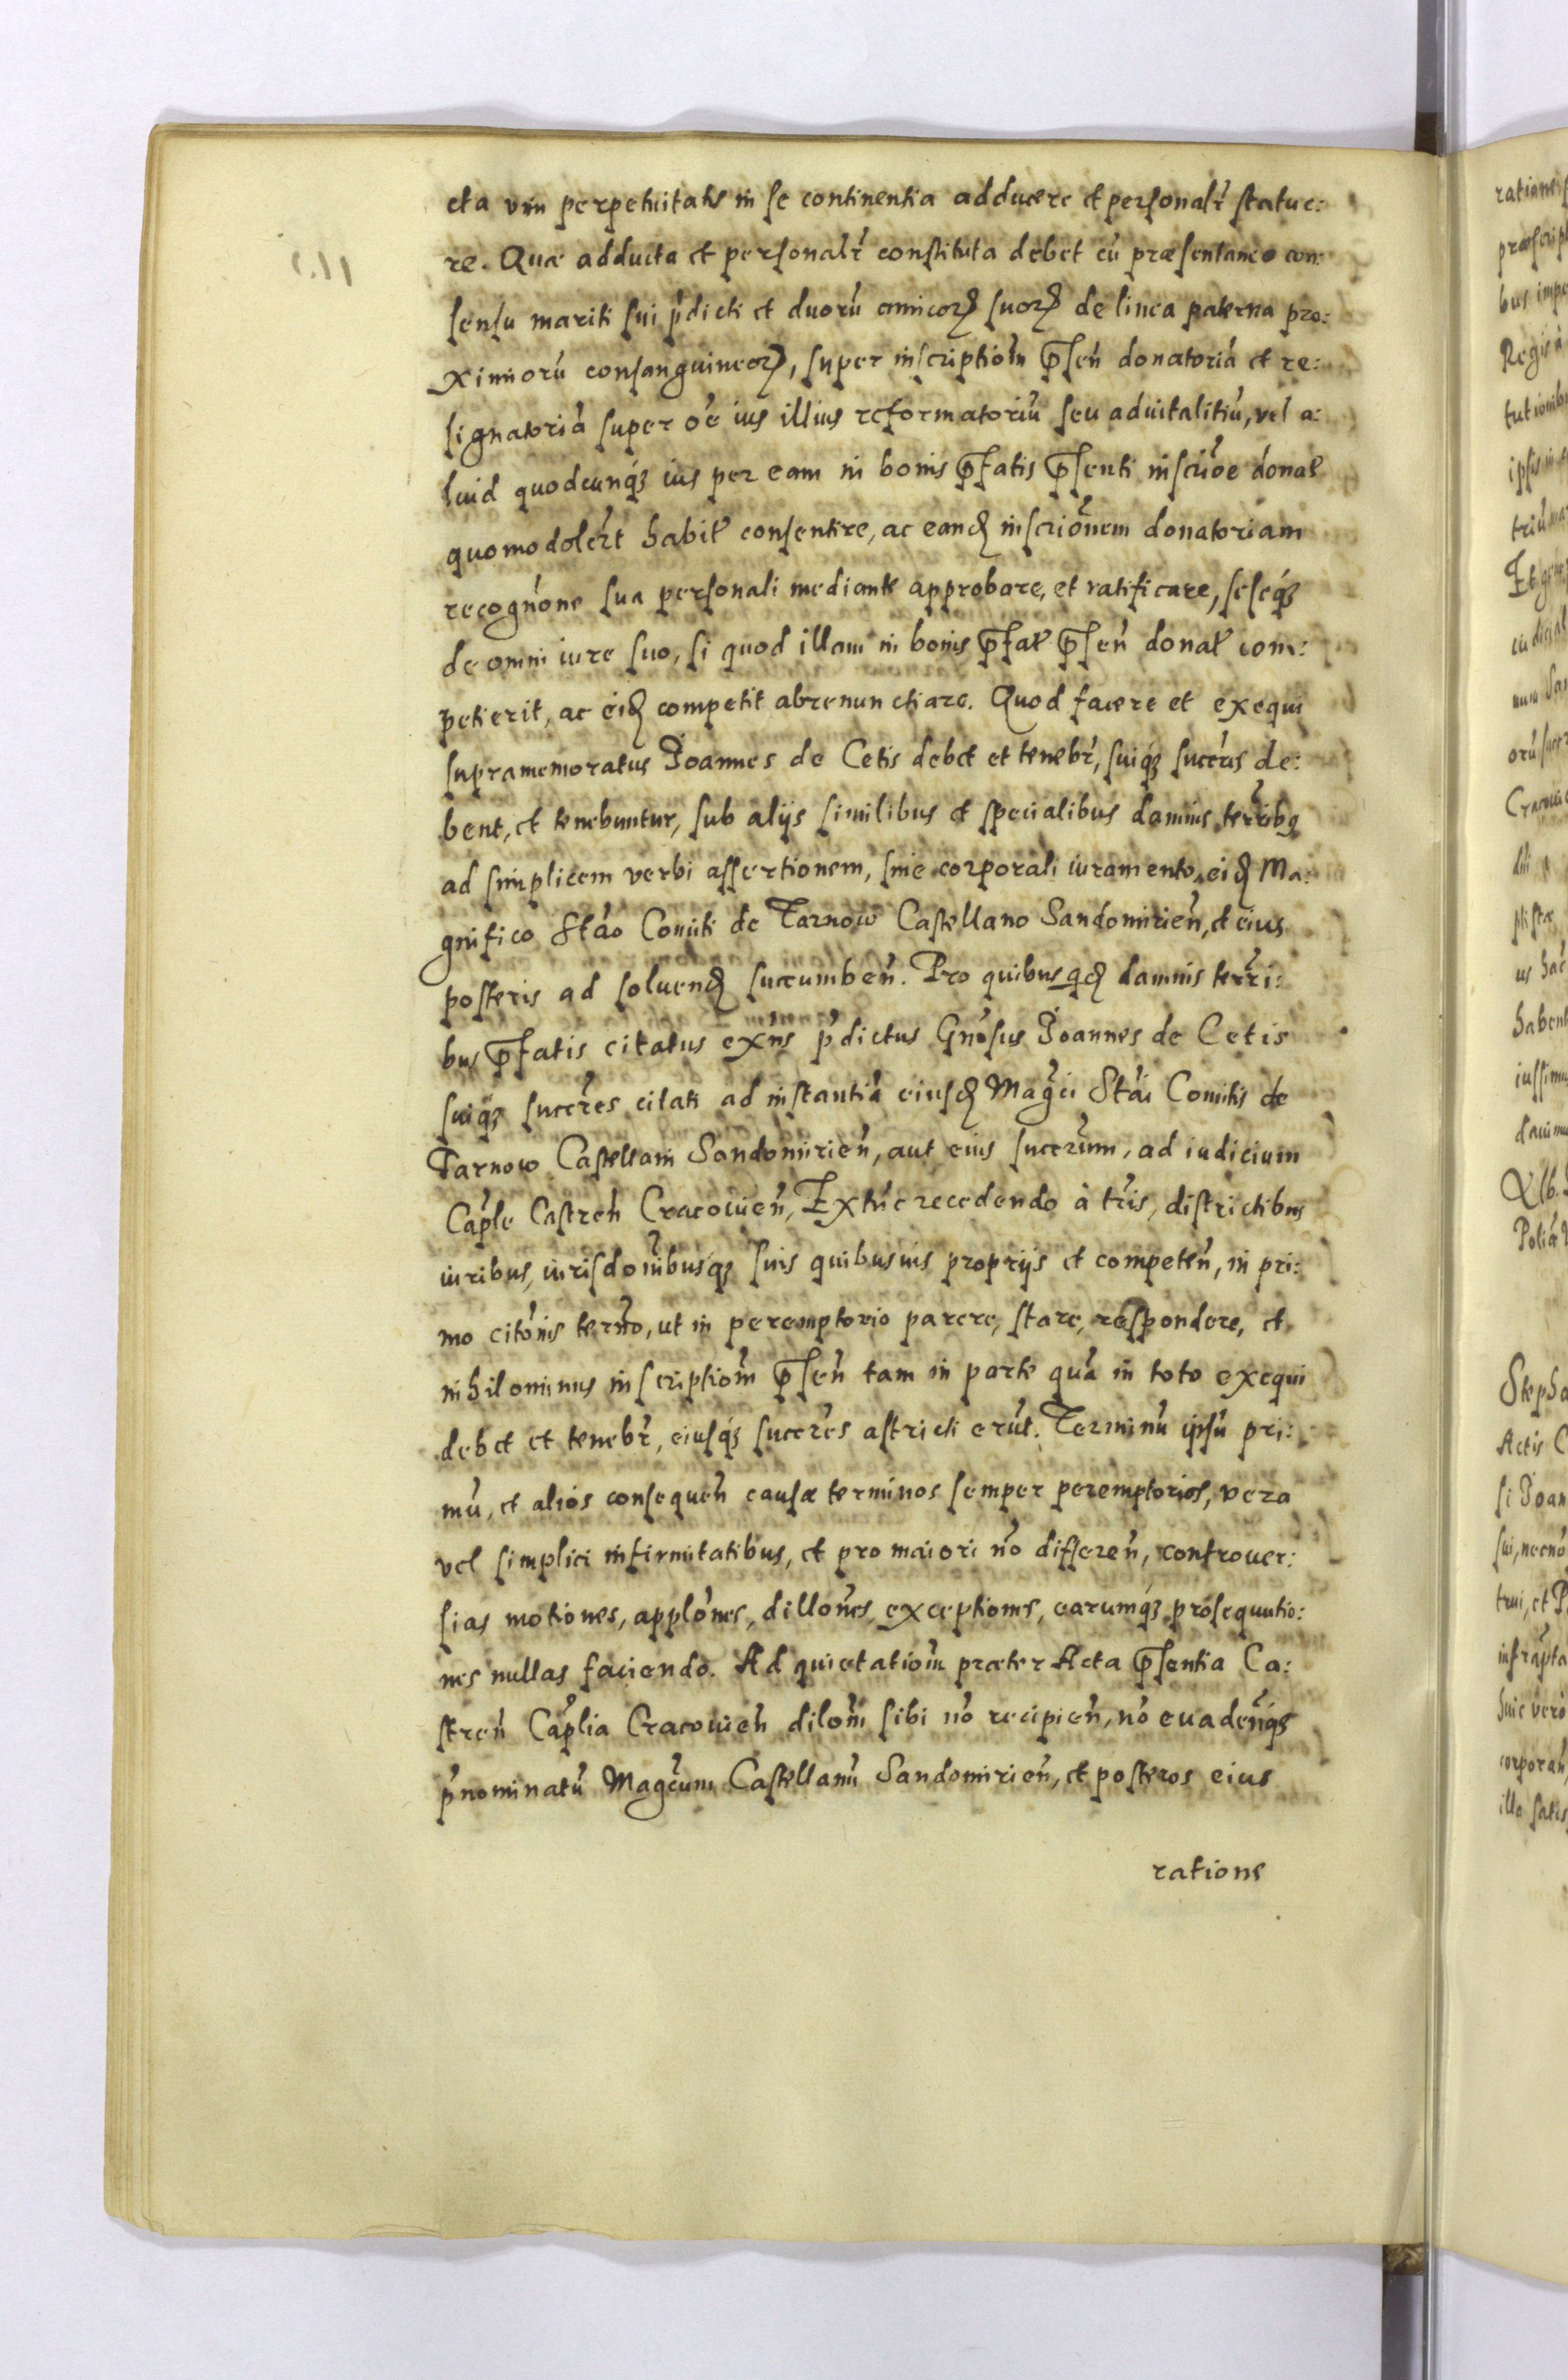 cta vim perpetuitatis in se continentia adducere et personalr̃ statue:
re. Quæ adducta et personalr̃ constituta debet cũ præsentaneo con:
sensu mariti sui p̃dicti et duorũ amicorꝝ suorꝝ de linea paterna pro:
ximiorũ consanguineorꝝ, super inscriptiom̃ p̃sen̄ donatoriã et re:
signatoriã super oẽ ius illius reformatoriũ seu aduitalitiũ, vel a:
liud quodcunq́ꝫ ius per eam in bonis p̃fatis p̃senti inscrõe donat̃
quomodolr̃t habit̃ consentire, ac eandꝫ inscriõnem donatoriam
recogñone sua personali mediante approbare, et ratificare, seseq́ꝫ
de omni iure suo, si quod illam in bonis p̃fat̃ p̃sen̄ donat̃ com:
petierit, ac eidꝫ competit abrenunctiare. Quod facere et exequi
supramemoratus Joannes de Cetis debet et tenebr̃, suiq́ꝫ succrẽs de:
bent, et tenebuntur, sub alijs similibus et specialibus damnis terrẽibꝫ
ad simplicem verbi assertionem, sine corporali iuramento eidꝫ Ma:
gnifico Stão Comiti de Tarnow Castellano Sandomirien̄, et eius
posteris ad soluendꝫ succumben̄. Pro quibus qdꝫ damnis terrẽi:
bus p̃fatis citatus exñs p̃dictus Gñosus Joannes de Cetis
suiq́ꝫ succrẽs citati ad instantiã eiusdꝫ Magc̃i Stãi Comitis de
Tarnow Castellani Sandomirien̄, aut eius succrũm, ad iudicium
Cap̃le Castren̄ Cracouien̄, Extũc recedendo à tr̃is, districtibus
iuribus, iurisdõnibusq́ꝫ suis quibusuis proprijs et competen̄, in pri:
mo citõnis term̃o, ut in peremptorio parere, stare, respondere, et
nihilominus inscriptiom̃ p̃sen̄ tam in parte quã in toto exequi
debet et tenebr̃, eiusq́ꝫ succrẽs astricti erũt. Terminũ ipsũ pri:
mũ, et aliòs consequen̄ causæ terminos semper peremptorios, vera
vel simplici infirmitatibus, et pro maiori nõ differen̄, controuer:
sias motiones, applõnes, dillõnes, exceptiones, earumq́ꝫ prosequutio:
nes nullas faciendo. Ad quietatiom̃ præter Acta p̃sentia Ca:
stren̄ Cap̃lia Cracouien̄ dilom̃ sibi nõ recipien̄, nõ euaden̄q́ꝫ
p̃nominatũ Magc̃um Castellanũ Sandomirien̄, et posteros eius
ratione